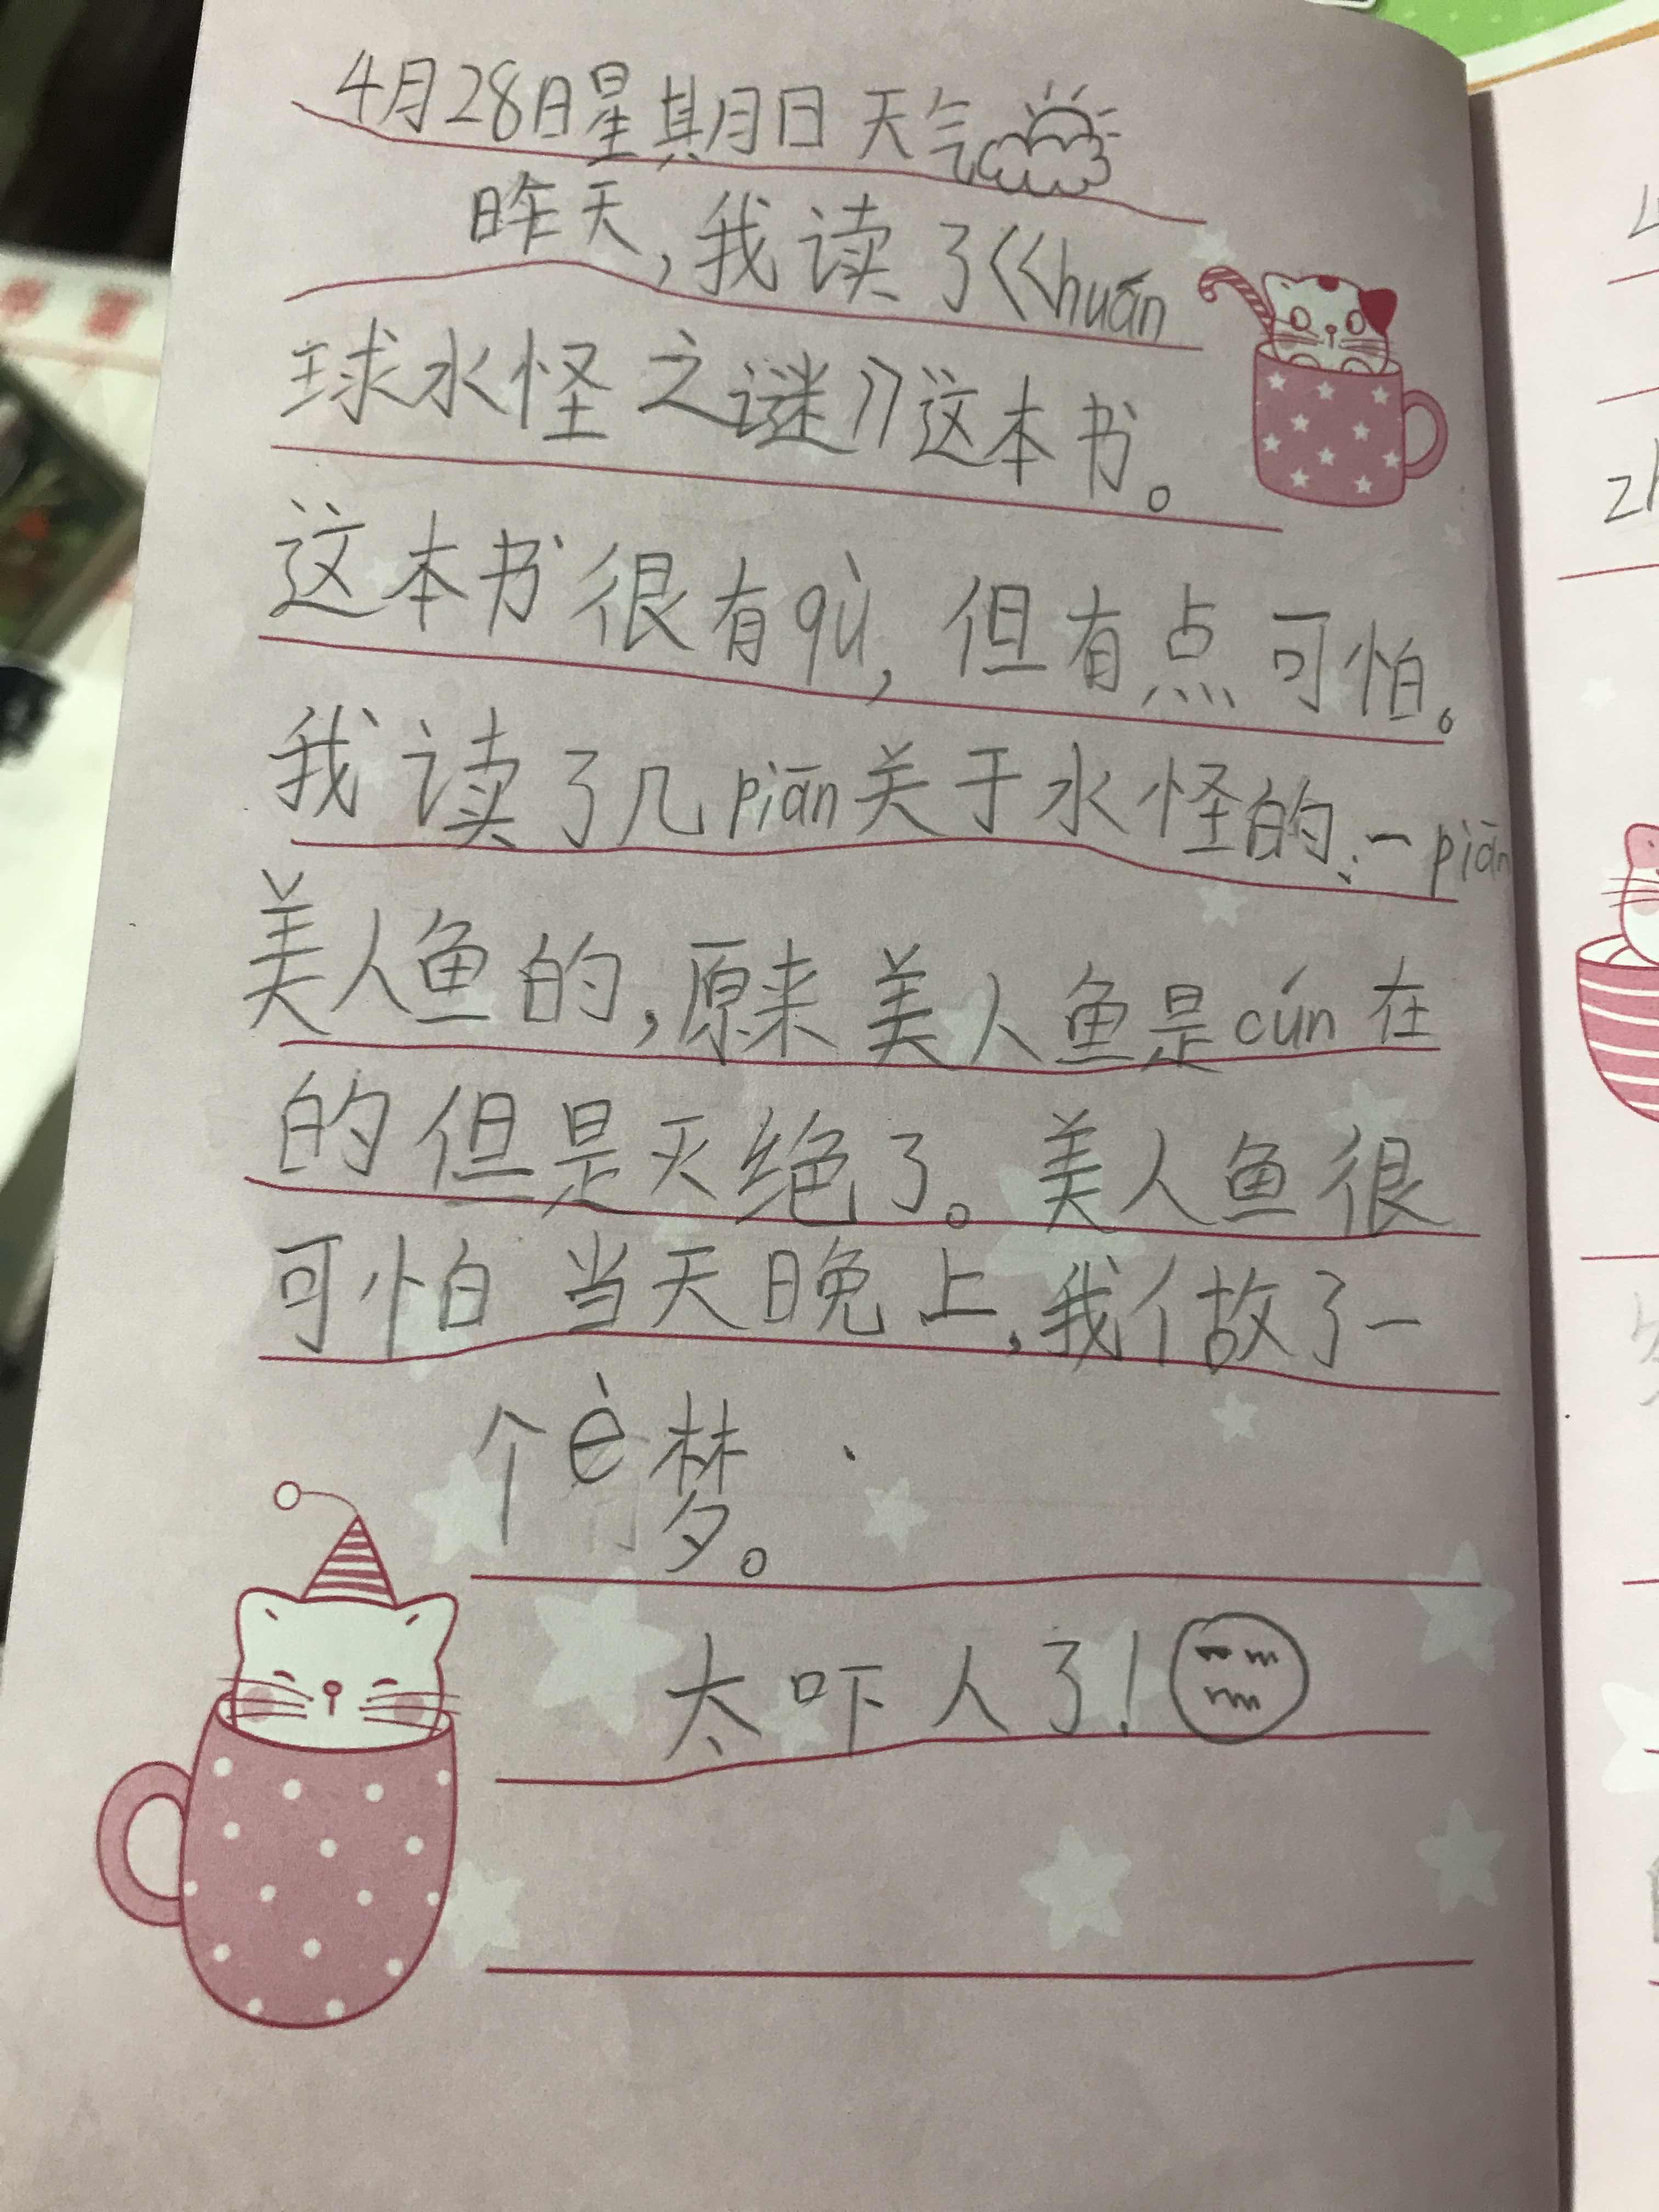 4月28日星期日 天气
昨天,我读了《huán
球水怪之谜》这本书。
这本书很有qù,但有点可怕。
我读了几piān关于水怪的:一piān
美人鱼的,原来美人鱼是cún在
的但是灭绝了。美人鱼很
可怕 当天晚上,我做了一
个è梦。
太吓人了!